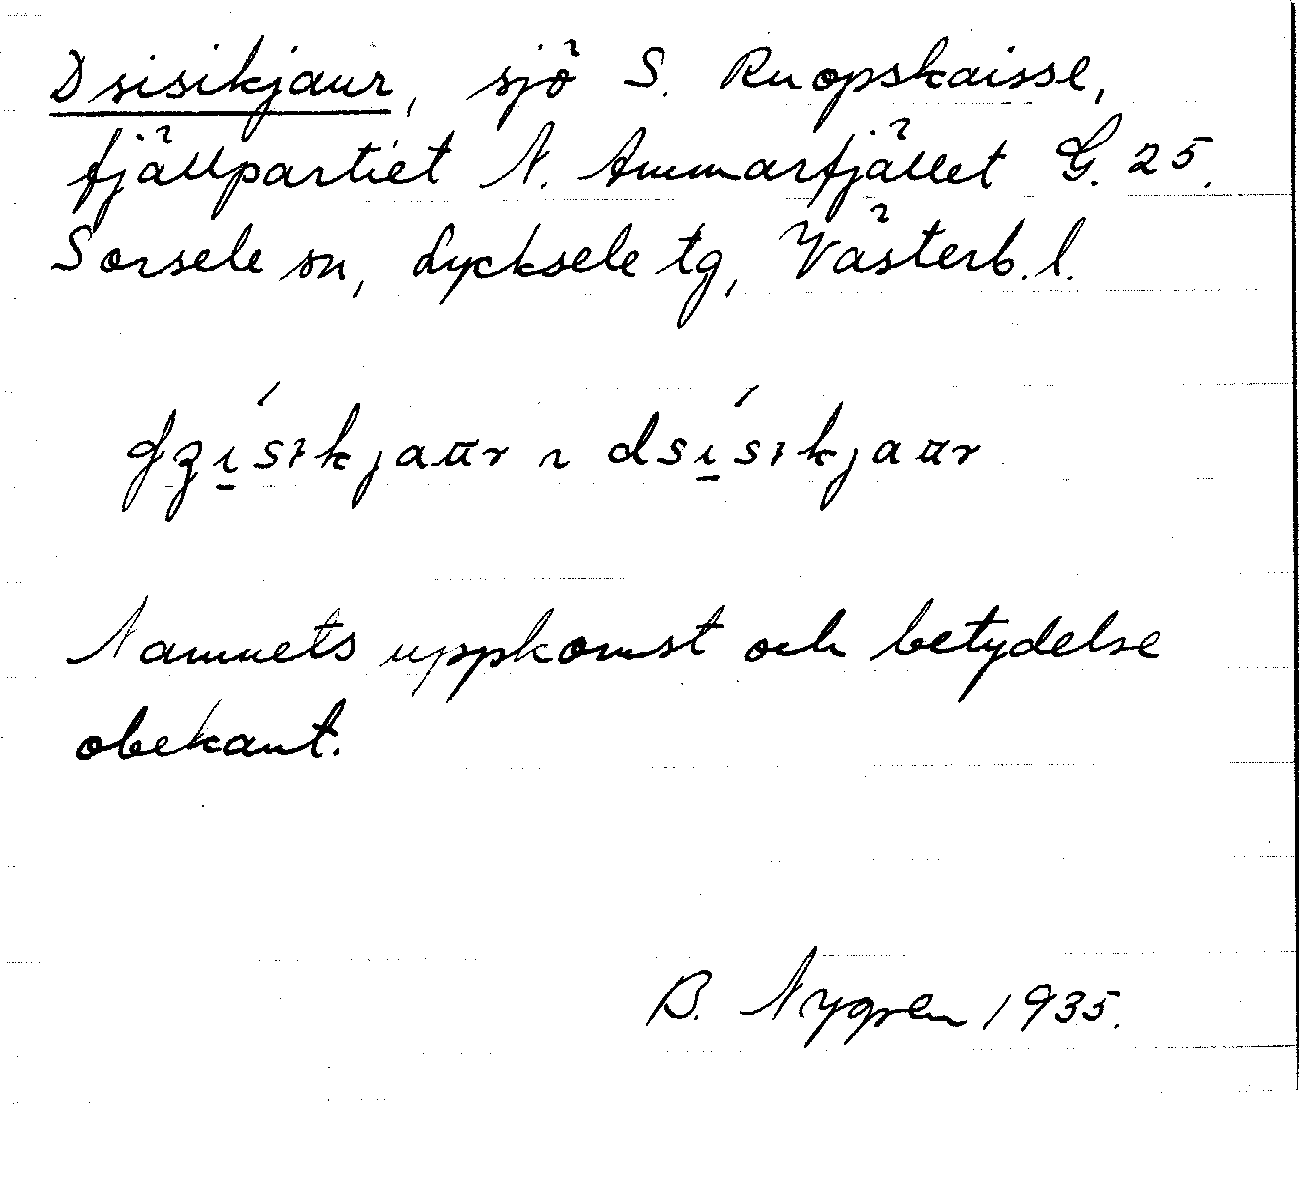 Dsisikjaur, sjö S. Ruopskaisse,
fjällpartiet N. Ammarfjället G. 25.
Sorsele sn, Lycksele tg, Västerb. l.
ʤı̱́sıkjaɯr ~ dsı̱́sıkjaɯr
Namnets uppkomst och betydelse
obekant.
B. Nygren 1935.